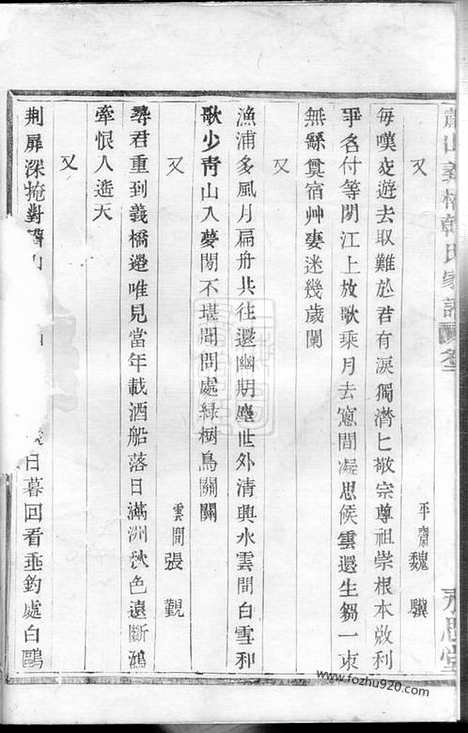 蕭山義橋韓氏家譜
永思堂
又
平齋魏驥
每嘆交遊去取難於君有淚獨濟匕敬宗尊祖崇根本效利
爭名付等閒江上放歌乘月去窻間凝思候雲還生芻一束
無繇奠宿艸萋迷幾歲闌
又
漁浦多風月扁舟共往還幽期塵世外清興水雲間白雪和
歌少青山入夢閒不堪閒問處綠樹鳥關關
又
雲間張觀
尋君重到義橋邊唯見當年載酒船落日滿洲秋色遠斷鴻
牽恨人遙天
又
荆扉深掩對
日暮回看垂釣處白鷗
www.fozhu920.com